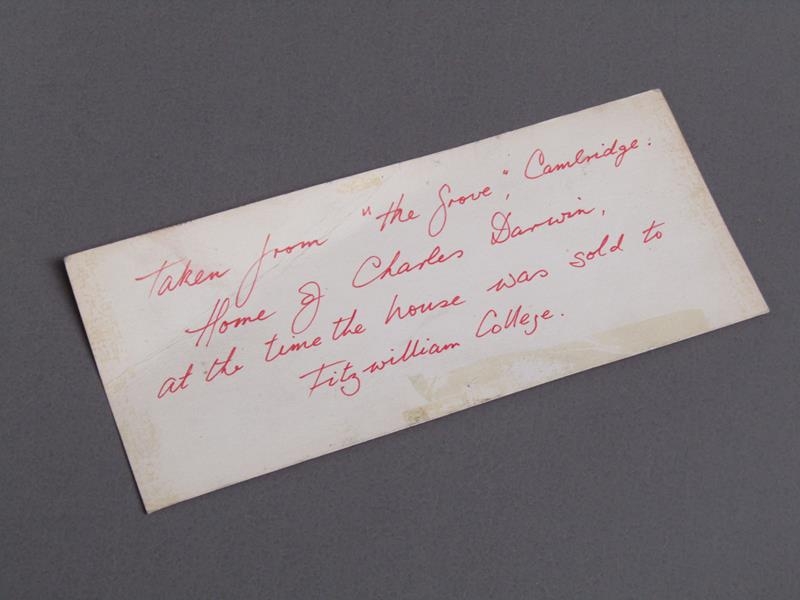 Taken from "the Grove", Cambridge.
Home of Charles Darwin,
at the time the house was sold to
Fitzwilliam College.